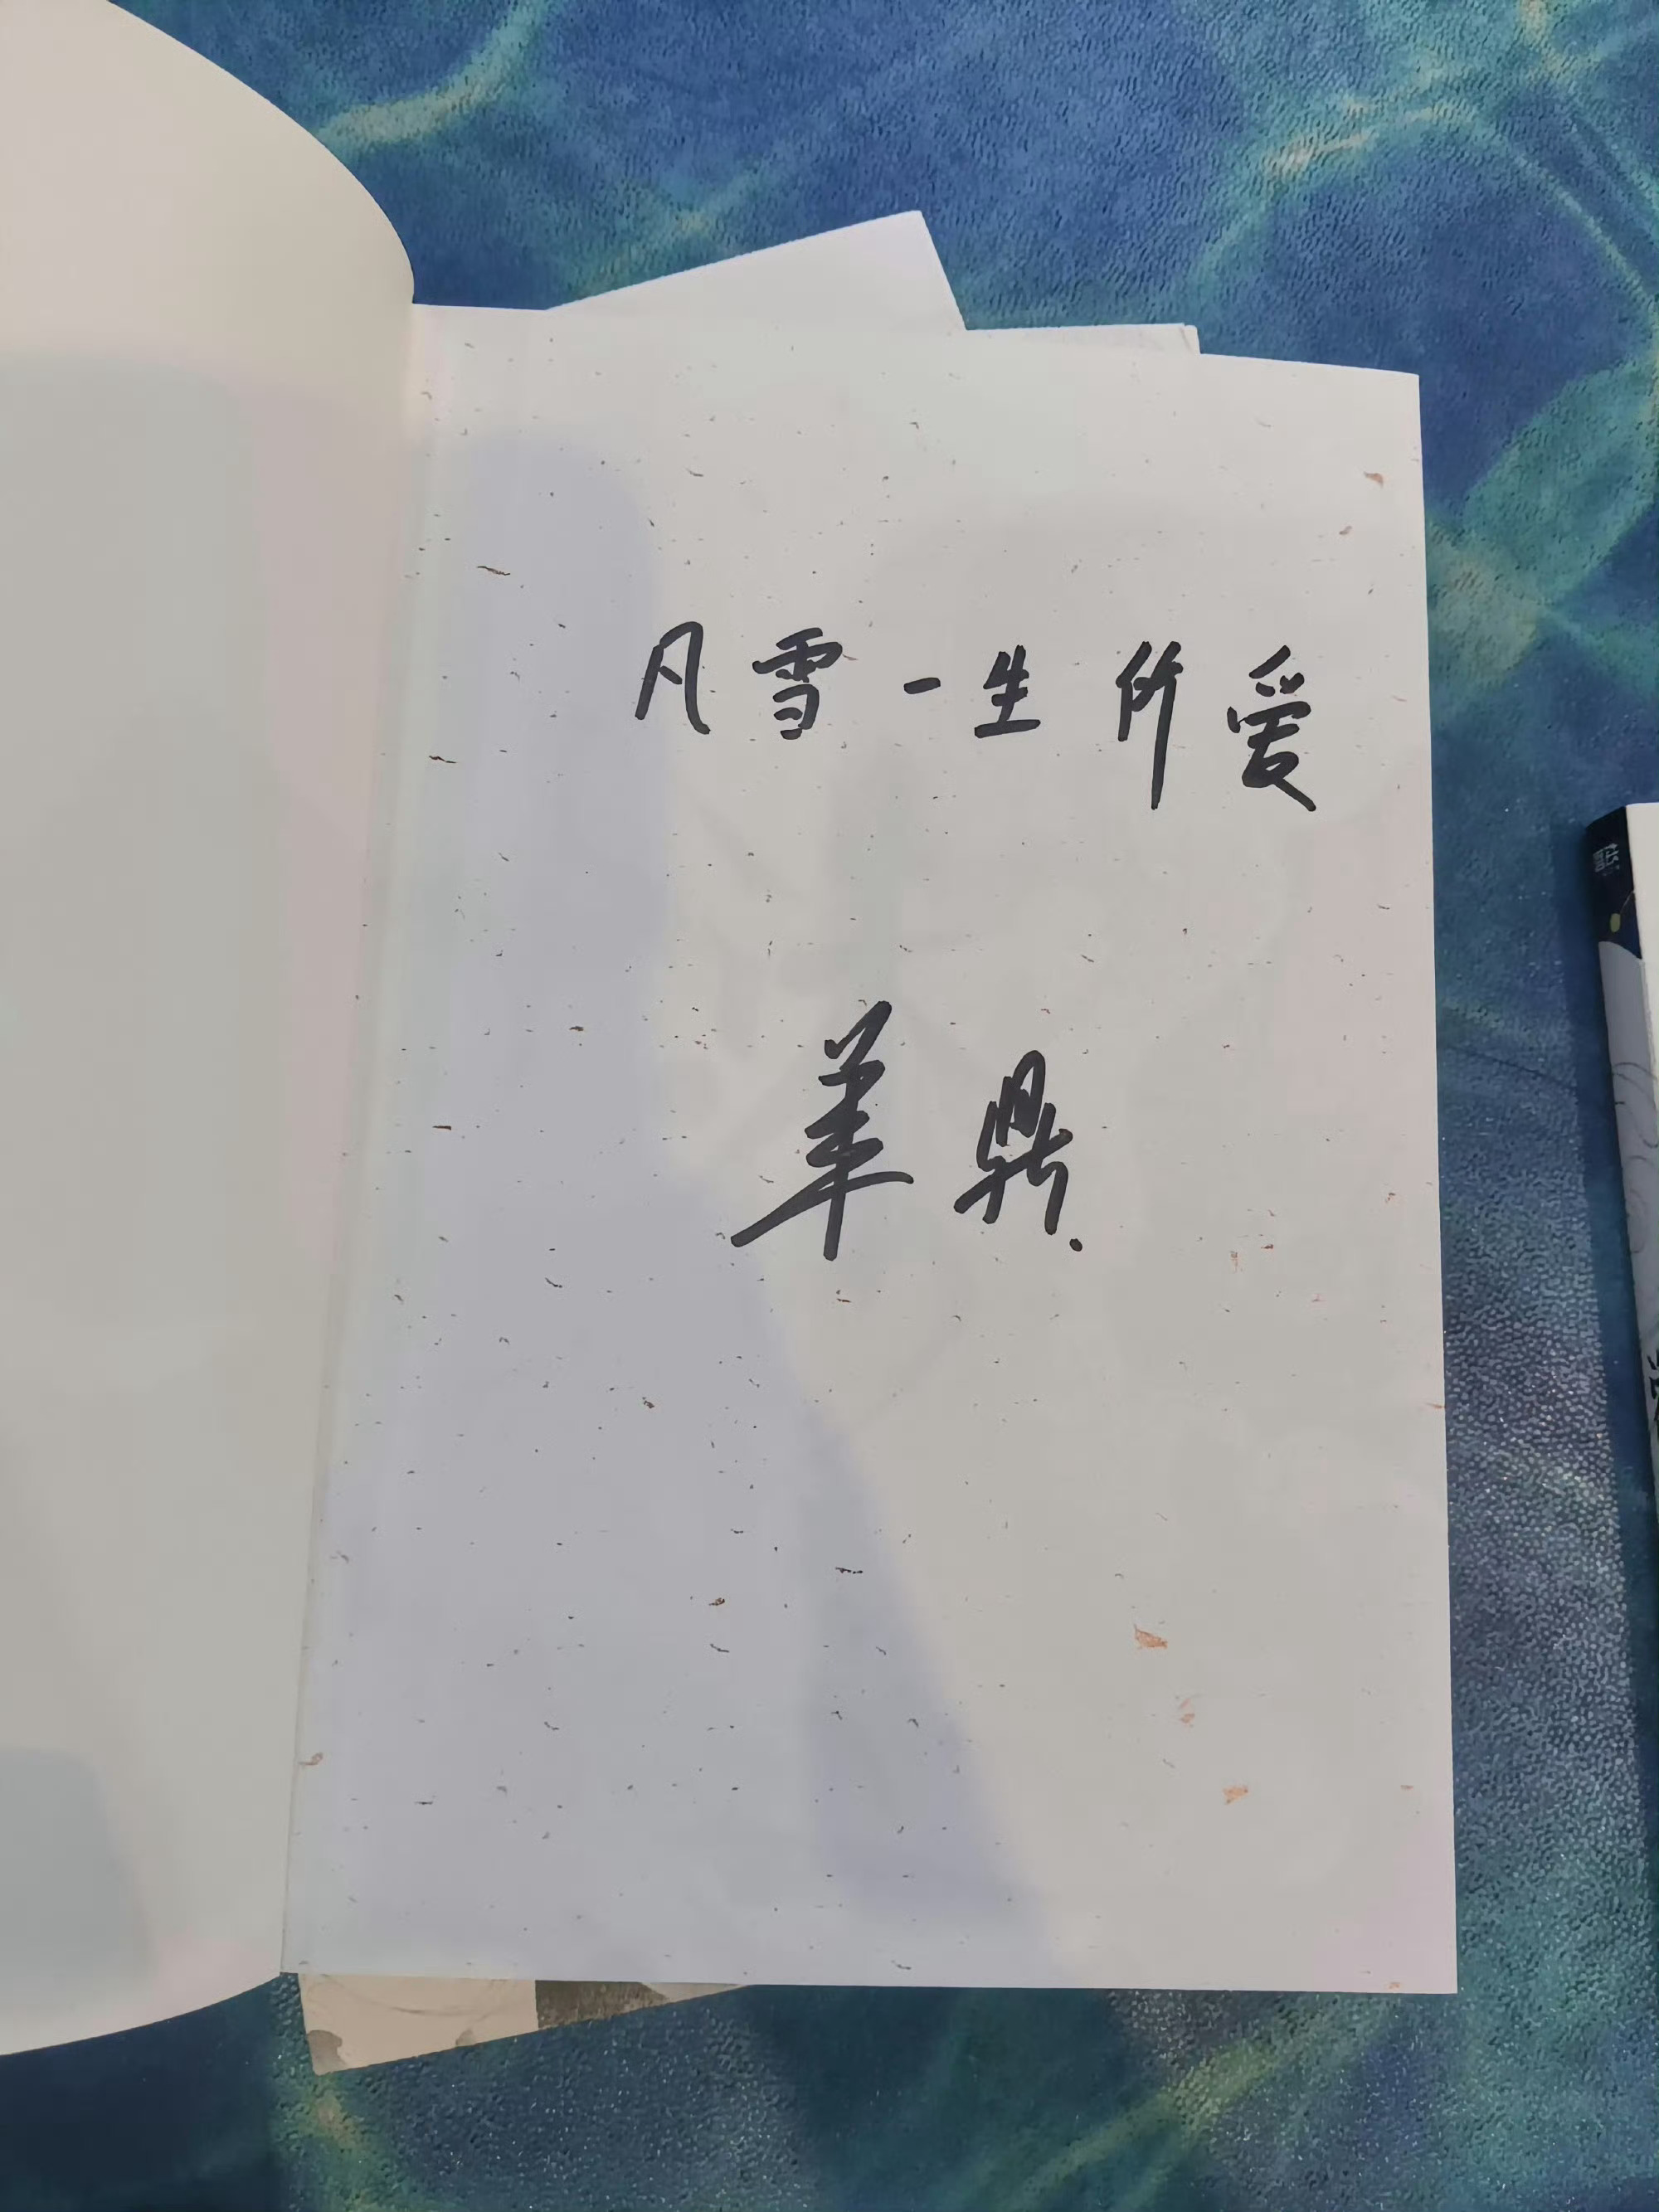 凡雪一生所爱
羊鼎